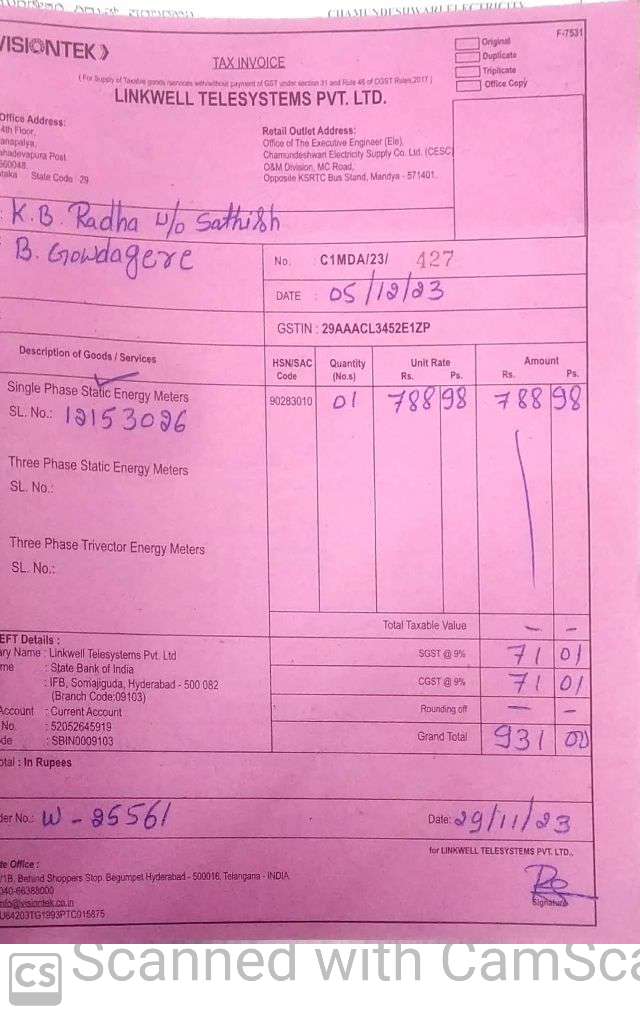 CHAMUNDESHWARI ELECTRICITY
VISIONTEK
TAX INVOICE
F-7531
Original
Duplicate
Triplicate
Office Copy
( For Supply of Taxable goods /services with/without payment of GST under section 31 and Rule 46 of CGST Rules,2017 )
LINKWELL TELESYSTEMS PVT. LTD.
Office Address:
4th Floor,
anapalya,
ahadevapura Post
560048.
taka State Code 29
Retail Outlet Address:
Office of The Executive Engineer (Ele).
Chamundeshwari Electricity Supply Co. Ltd. (CESC)
O&M Division, MC Road,
Opposite KSRTC Bus Stand, Mandya - 571401.
: K.B. Radha w/o Sathish
B. Gowdagere
No. : C1MDA/23/ 427
DATE : 05/12/23
GSTIN : 29AAACL3452E1ZP
Description of Goods / Services HSN/SAC Code Quantity (No.s) Unit Rate Rs. Ps. Amount Rs. Ps.
Single Phase Static Energy Meters 90283010 01 788 98 788 98
SL. No.: 12153026
Three Phase Static Energy Meters
SL. No.:
Three Phase Trivector Energy Meters
SL. No.:
Total Taxable Value — –
SGST @ 9% 71 01
CGST @ 9% 71 01
Rounding off — –
Grand Total 931 00
EFT Details :
ary Name : Linkwell Telesystems Pvt. Ltd
me : State Bank of India
: IFB, Somajiguda, Hyderabad - 500 082
(Branch Code:09103)
Account : Current Account
No. : 52052645919
de : SBIN0009103
otal : In Rupees
der No.: W - 25561
Date: 29/11/23
for LINKWELL TELESYSTEMS PVT. LTD.,
te Office :
/1B, Behind Shoppers Stop, Begumpet Hyderabad - 500016, Telangana - INDIA
040-66388000
nfo@visiontek.co.in
U64203TG1993PTC015875
Signature
CS Scanned with CamSca